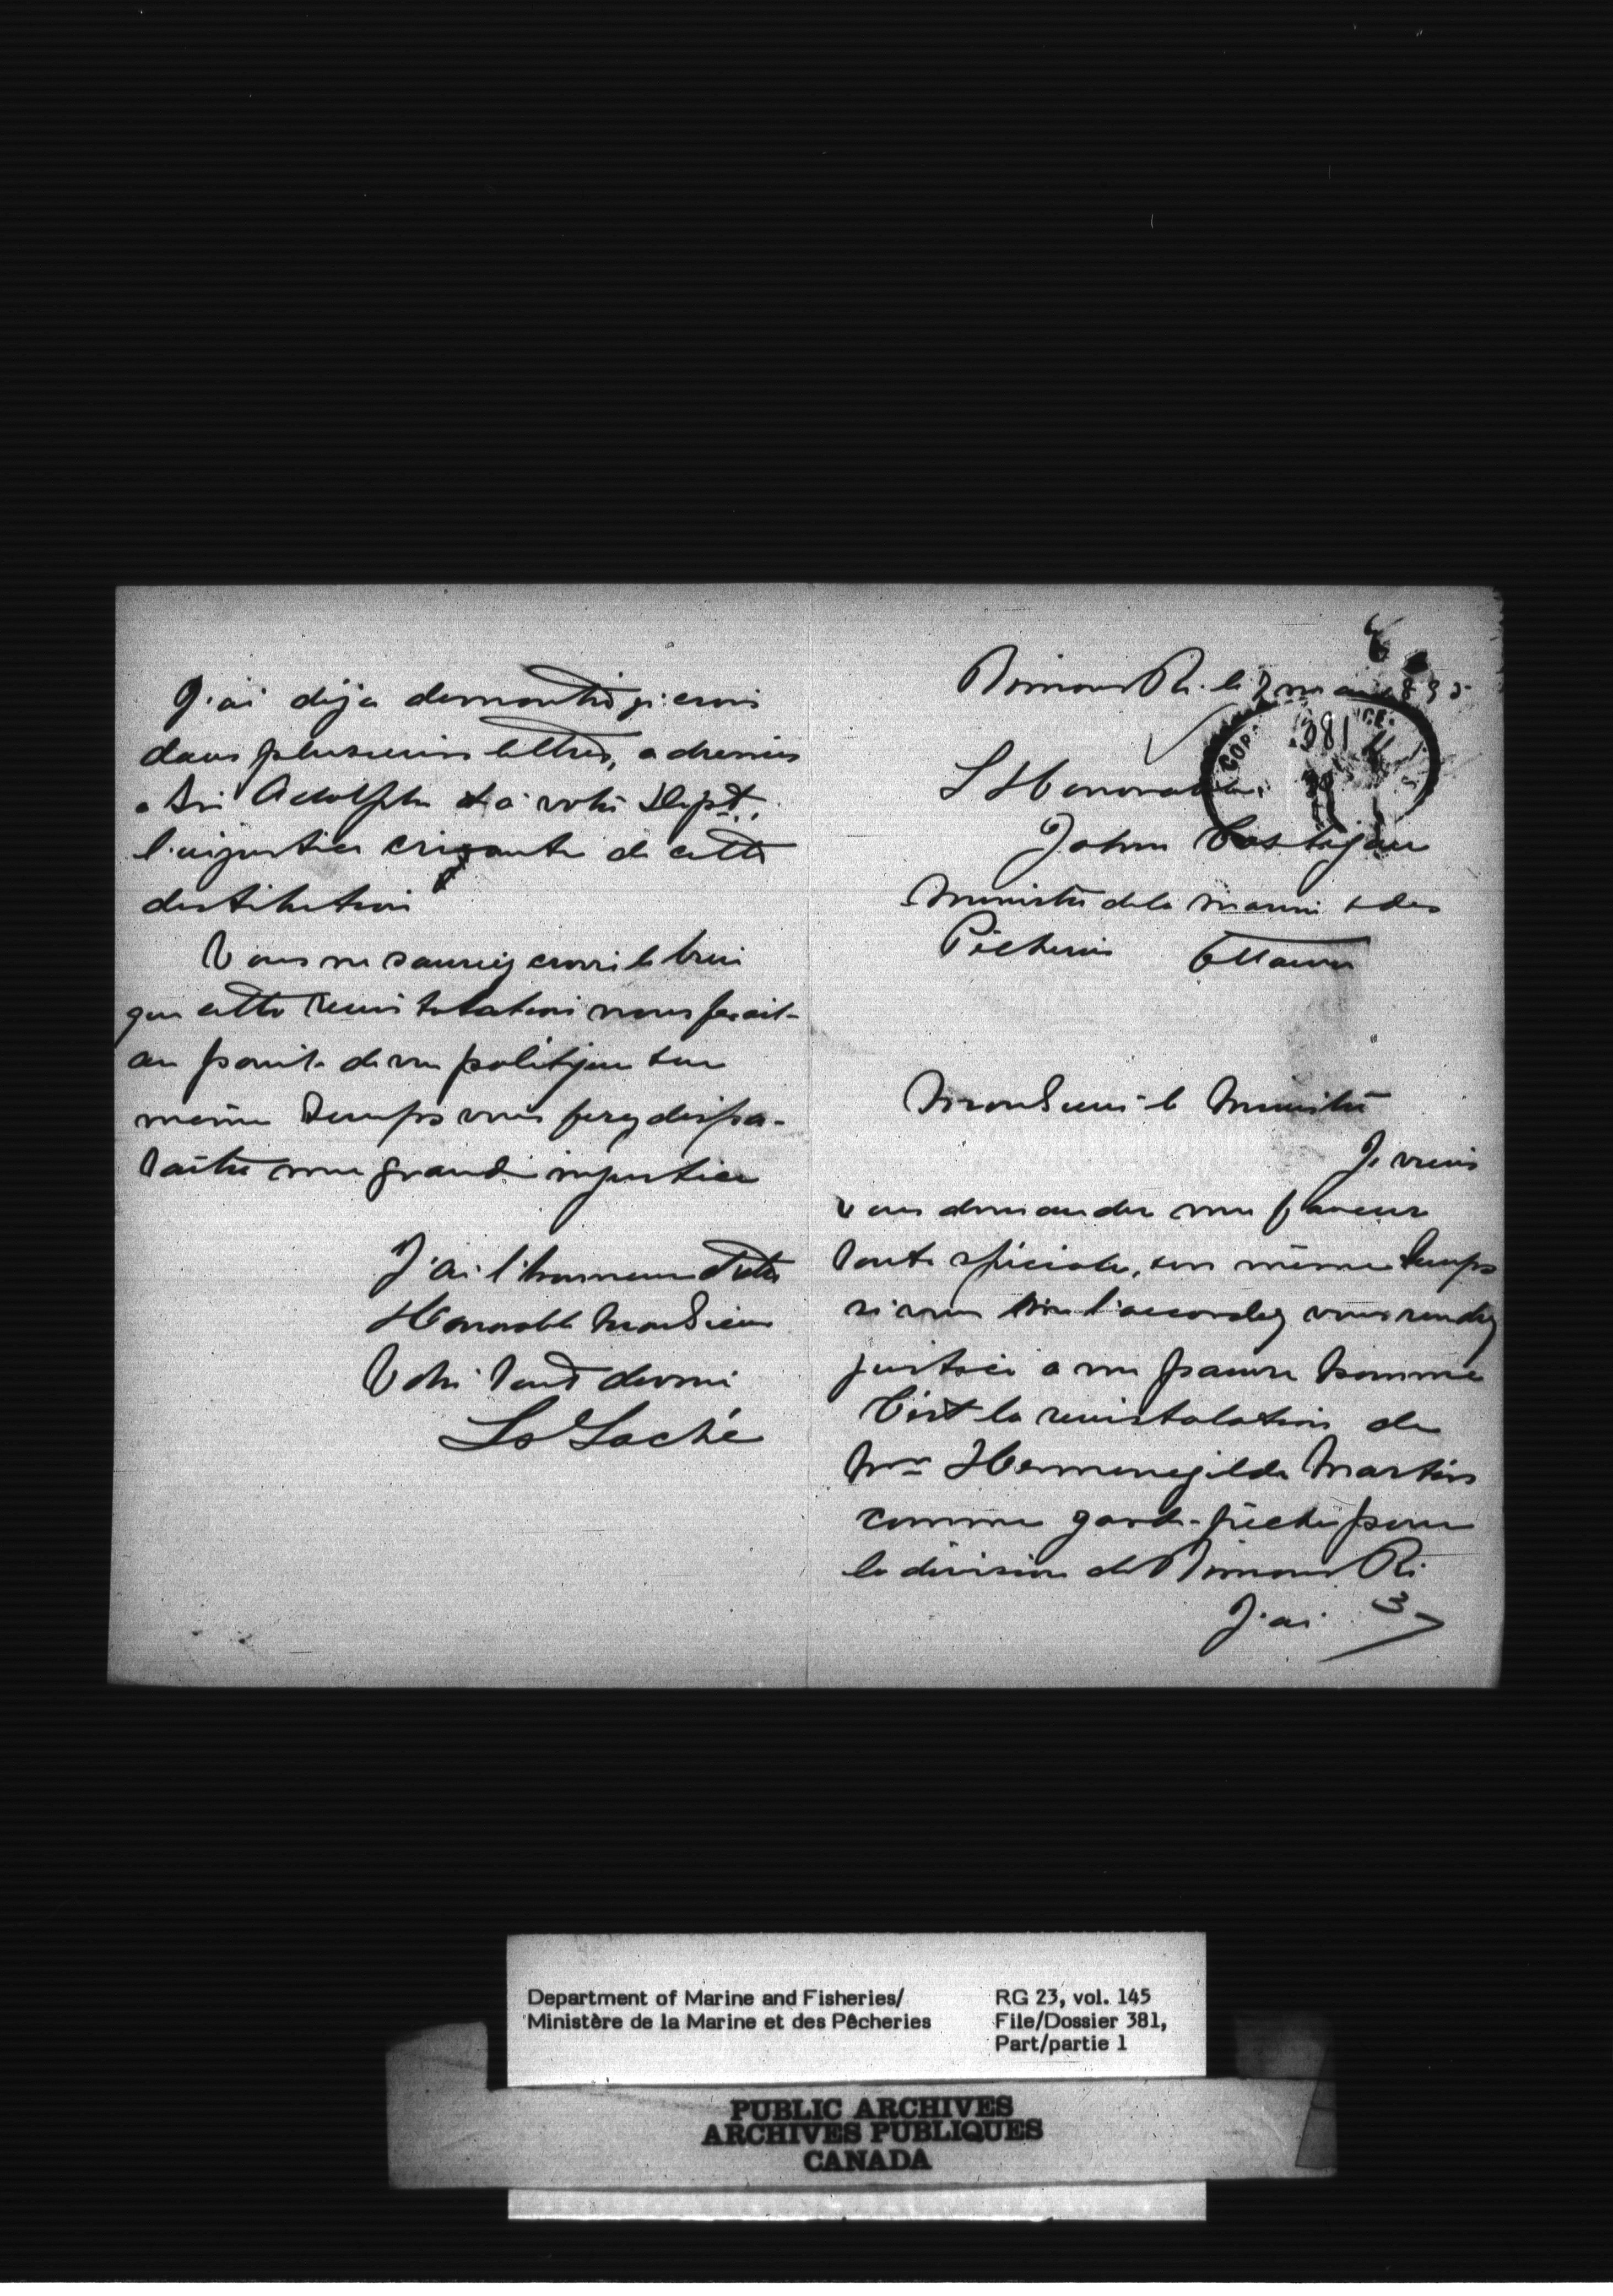 Rimouski le 2 mai 1895
L'Honorable
John Costigan
Ministre de la marine & des
Pêcheries Ottawa
Monsieur le Ministre
Je viens
vous demander une faveur
toute spéciale, en même temps
si vous me l'accordez vous rendez
justice a un pauvre homme
C'est la reinstalation de
Mr Hermenegilde Martin
comme garde-pêche pour
la division de Rimouski
J'ai
J'ai déja demontré je crois
dans plusieurs lettres, adressées
a Sir Adolphe et à votre Dept.
l'injustice criante de cette
destitution
Vous ne sauriez croire le bien
que cette reinstalation nous ferait
au point de vue politique & en
même temps vous ferez dispa-
raître une grande injustice
J'ai l'honneur d'être
Honorable Monsieur
Votre tout devoué
Ls Taché
Department of Marine and Fisheries/
Ministère de la Marine et des Pêcheries
RG 23, vol. 145
File/Dossier 381,
Part/partie 1
PUBLIC ARCHIVES
ARCHIVES PUBLIQUES
CANADA